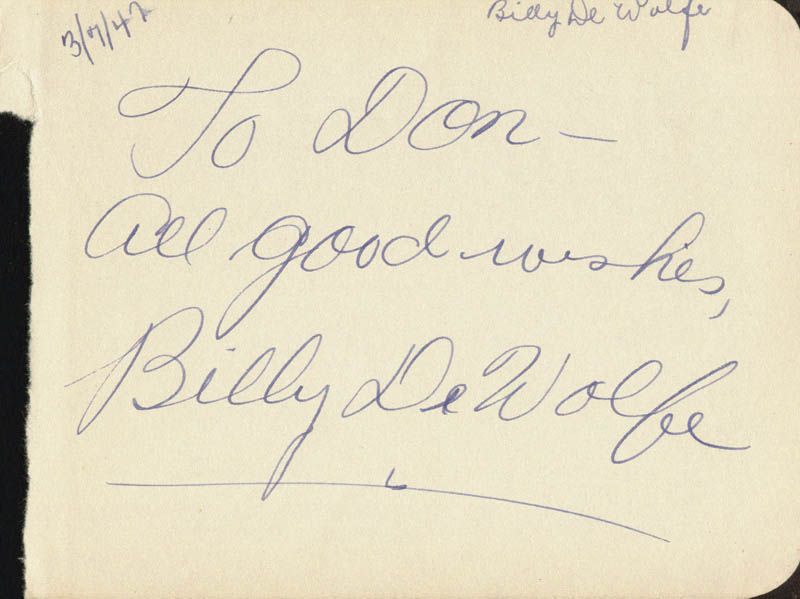 3/7/47
Billy De Wolfe
To Don —
All good wishes,
Billy De Wolfe